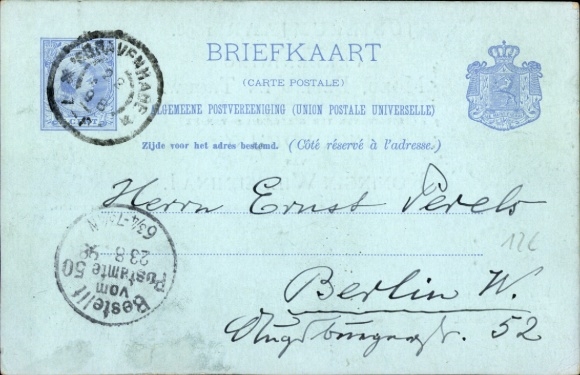 'SGRAVENHAGE
BRIEFKAART
(CARTE POSTALE)
ALGEMEENE POSTVEREENIGING (UNION POSTALE UNIVERSELLE)
Zijde voor het adres bestemd. (Côté réservé à l'adresse.)
Herrn Ernst Perels
12€
Berlin W.
Augsburgerstr. 52
Bestellt
vom
Postamte 50
23.8.98
6¾-7½N